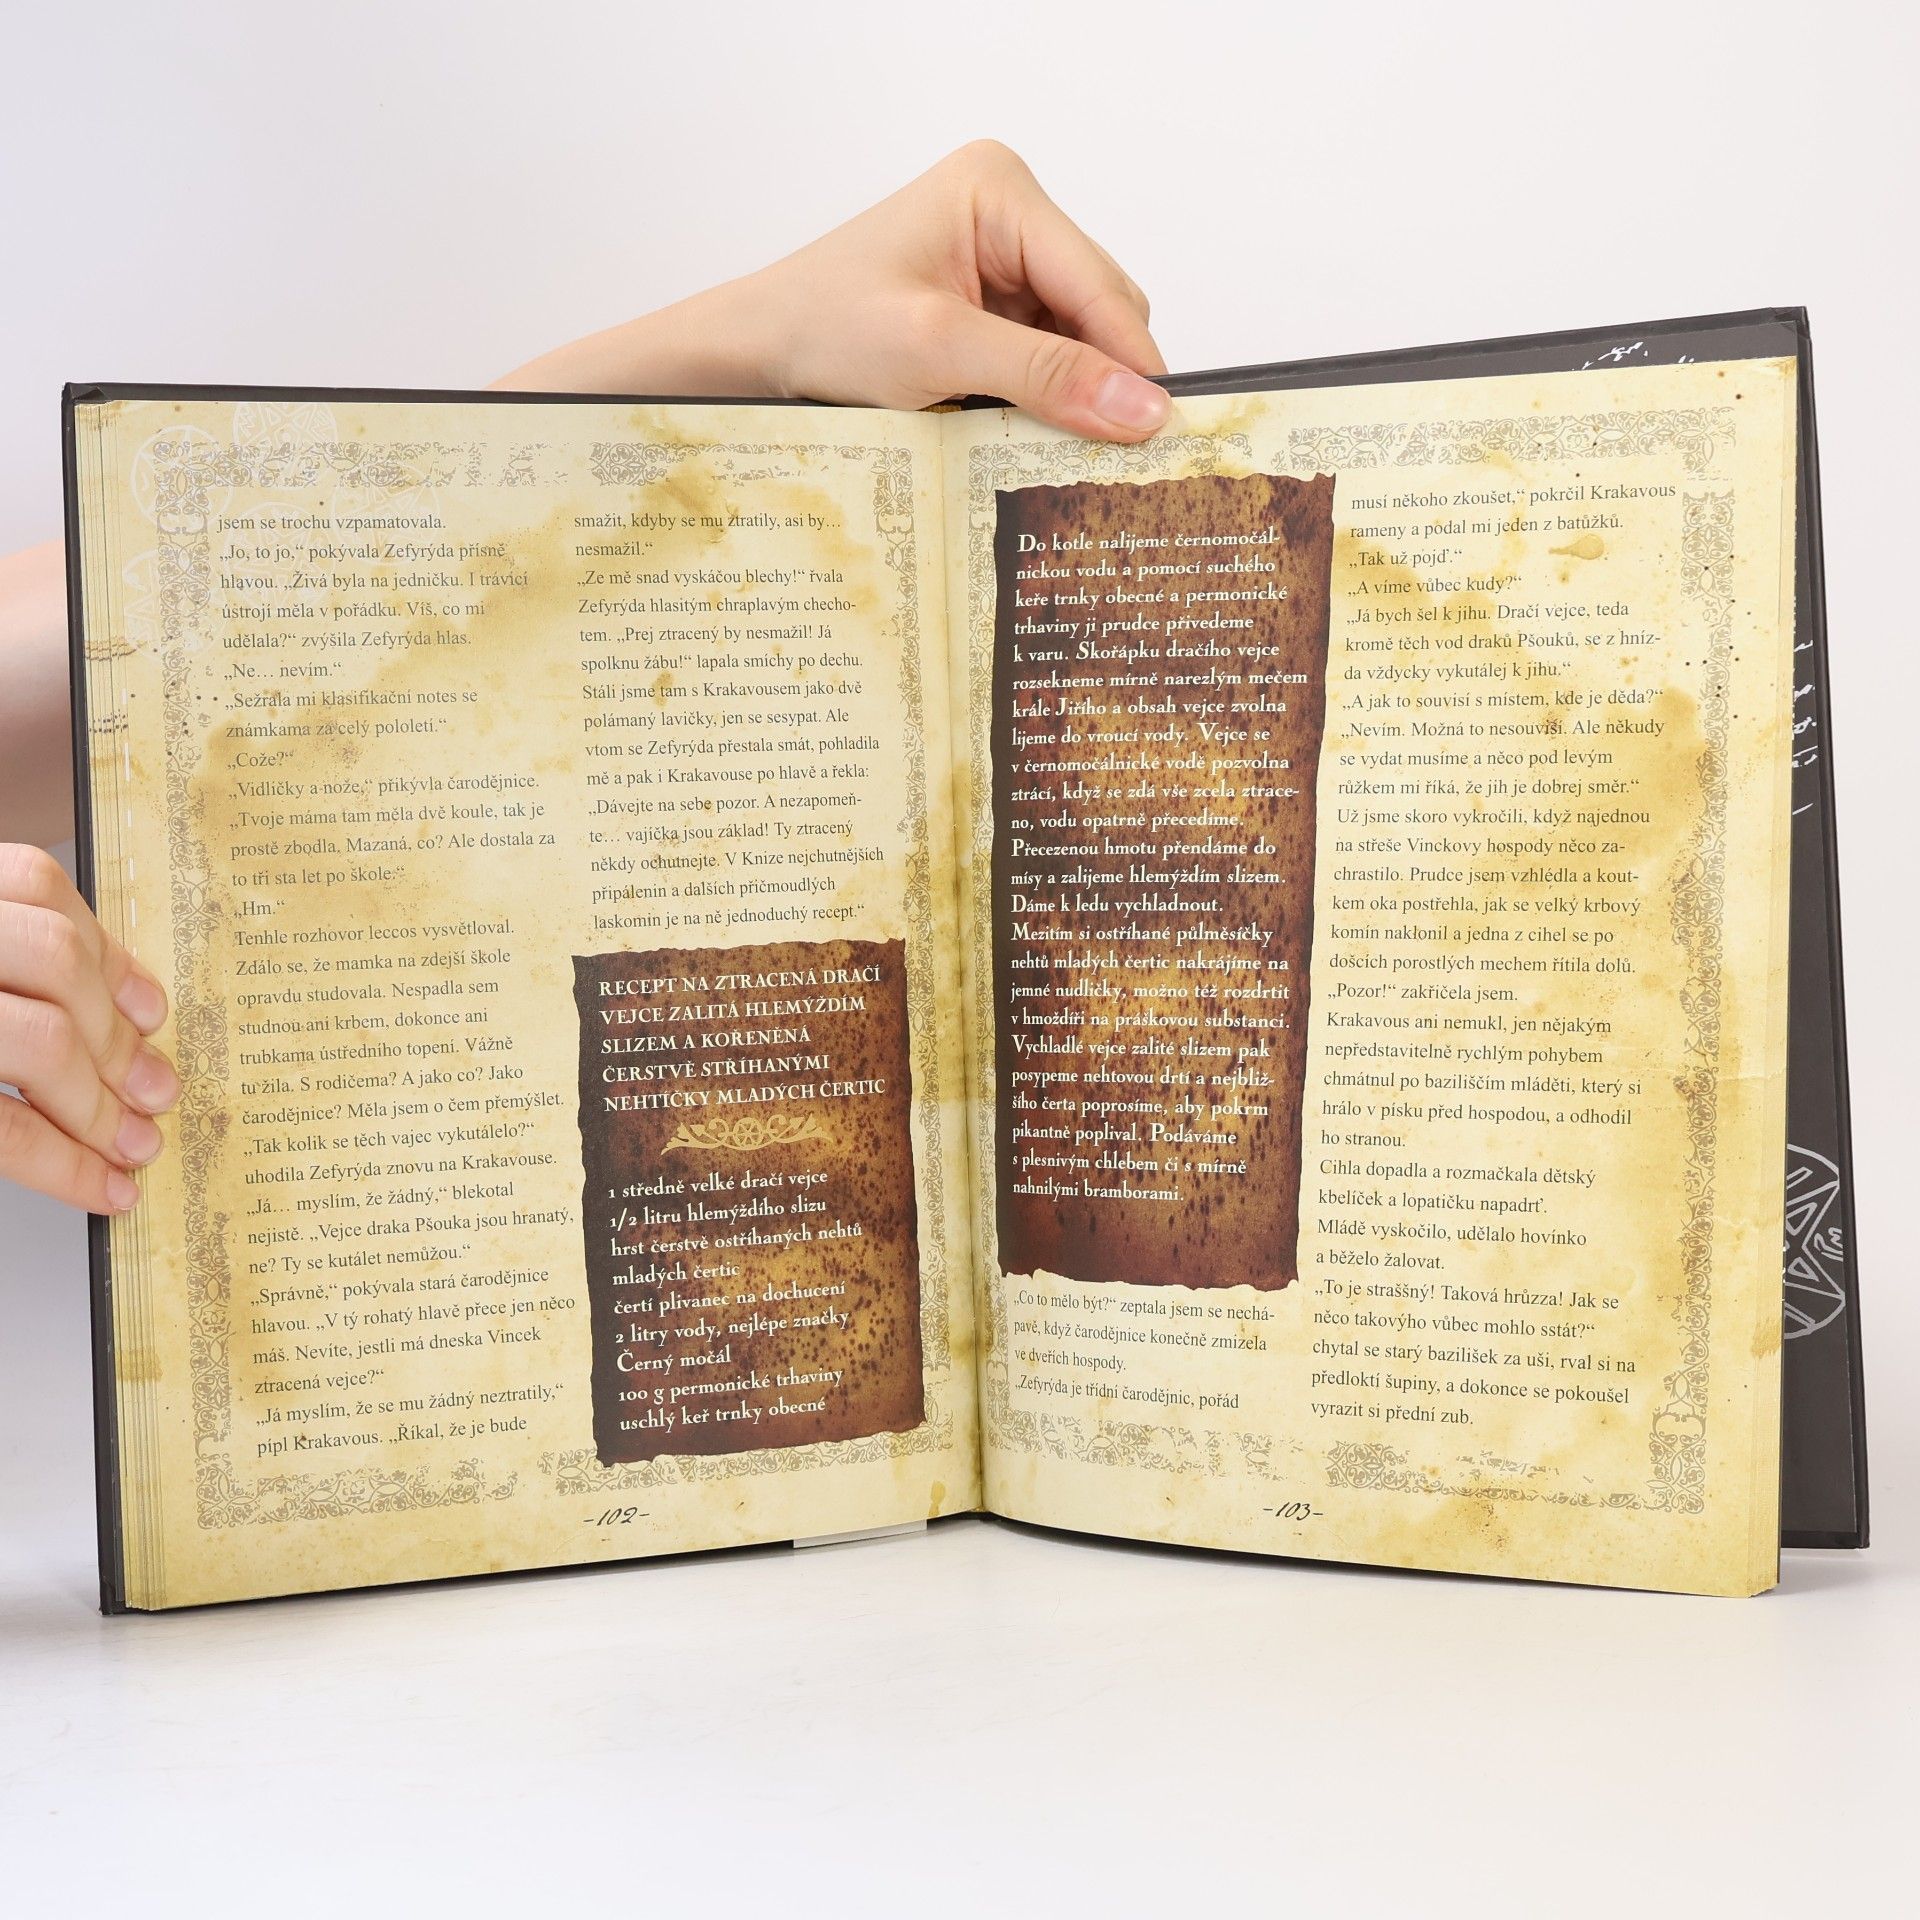 jsem se trochu vzpamatovala.
„Jo, to jo,“ pokývala Zefyrýda přísně
hlavou. „Živá byla na jedničku. I trávicí
ústrojí měla v pořádku. Víš, co mi
udělala?“ zvýšila Zefyrýda hlas.
„Ne… nevím.“
„Sežrala mi klasifikační notes se
známkama za celý pololetí.“
„Cože?“
„Vidličky a nože,“ přikývla čarodějnice.
„Tvoje máma tam měla dvě koule, tak je
prostě zbodla. Mazaná, co? Ale dostala za
to tři sta let po škole.“
„Hm.“
Tenhle rozhovor leccos vysvětloval.
Zdálo se, že mamka na zdejší škole
opravdu studovala. Nespadla sem
studnou ani krbem, dokonce ani
trubkama ústředního topení. Vážně
tu žila. S rodičema? A jako co? Jako
čarodějnice? Měla jsem o čem přemýšlet.
„Tak kolik se těch vajec vykutálelo?“
uhodila Zefyrýda znovu na Krakavouse.
„Já… myslím, že žádný,“ blekotal
nejistě. „Vejce draka Pšouka jsou hranatý,
ne? Ty se kutálet nemůžou.“
„Správně,“ pokývala stará čarodějnice
hlavou. „V tý rohatý hlavě přece jen něco
máš. Nevíte, jestli má dneska Vincek
ztracená vejce?“
„Já myslím, že se mu žádný neztratily,“
pípl Krakavous. „Říkal, že je bude
smažit, kdyby se mu ztratily, asi by…
nesmažil.“
„Ze mě snad vyskáčou blechy!“ řvala
Zefyrýda hlasitým chraplavým checho-
tem. „Prej ztracený by nesmažil! Já
spolknu žábu!“ lapala smíchy po dechu.
Stáli jsme tam s Krakavousem jako dvě
polámaný lavičky, jen se sesypat. Ale
vtom se Zefyrýda přestala smát, pohladila
mě a pak i Krakavouse po hlavě a řekla:
„Dávejte na sebe pozor. A nezapomeň-
te… vajíčka jsou základ! Ty ztracený
někdy ochutnejte. V Knize nejchutnějších
připálenin a dalších přičmoudlých
laskomin je na ně jednoduchý recept.“
RECEPT NA ZTRACENÁ DRAČÍ
VEJCE ZALITÁ HLEMÝŽDÍM
SLIZEM A KOŘENĚNÁ
ČERSTVĚ STŘÍHANÝMI
NEHTÍČKY MLADÝCH ČERTIC
1 středně velké dračí vejce
1/2 litru hlemýždího slizu
hrst čerstvě ostříhaných nehtů
mladých čertic
čertí plivanec na dochucení
2 litry vody, nejlépe značky
Černý močál
100 g permonické trhaviny
uschlý keř trnky obecné
-102-
Do kotle nalijeme černomočál-
nickou vodu a pomocí suchého
keře trnky obecné a permonické
trhaviny ji prudce přivedeme
k varu. Skořápku dračího vejce
rozsekneme mírně narezlým mečem
krále Jiřího a obsah vejce zvolna
lijeme do vroucí vody. Vejce se
v černomočálnické vodě pozvolna
ztrácí, když se zdá vše zcela ztrace-
no, vodu opatrně přecedíme.
Přecezenou hmotu přendáme do
mísy a zalijeme hlemýždím slizem.
Dáme k ledu vychladnout.
Mezitím si ostříhané půlměsíčky
nehtů mladých čertic nakrájíme na
jemné nudličky, možno též rozdrtit
v hmoždíři na práškovou substanci.
Vychladlé vejce zalité slizem pak
posypeme nehtovou drtí a nejbliž-
šího čerta poprosíme, aby pokrm
pikantně poplival. Podáváme
s plesnivým chlebem či s mírně
nahnilými bramborami.
„Co to mělo být?“ zeptala jsem se nechá-
pavě, když čarodějnice konečně zmizela
ve dveřích hospody.
„Zefyrýda je třídní čarodějnic, pořád
musí někoho zkoušet,“ pokrčil Krakavous
rameny a podal mi jeden z batůžků.
„Tak už pojď.“
„A víme vůbec kudy?“
„Já bych šel k jihu. Dračí vejce, teda
kromě těch vod draků Pšouků, se z hníz-
da vždycky vykutálej k jihu.“
„A jak to souvisí s místem, kde je děda?“
„Nevím. Možná to nesouvisí. Ale někudy
se vydat musíme a něco pod levým
růžkem mi říká, že jih je dobrej směr.“
Už jsme skoro vykročili, když najednou
na střeše Vinckovy hospody něco za-
chrastilo. Prudce jsem vzhlédla a kout-
kem oka postřehla, jak se velký krbový
komín naklonil a jedna z cihel se po
došcích porostlých mechem řítila dolů.
„Pozor!“ zakřičela jsem.
Krakavous ani nemukl, jen nějakým
nepředstavitelně rychlým pohybem
chmátnul po baziliščím mláděti, který si
hrálo v písku před hospodou, a odhodil
ho stranou.
Cihla dopadla a rozmačkala dětský
kbelíček a lopatičku napadrť.
Mládě vyskočilo, udělalo hovínko
a běželo žalovat.
„To je straššný! Taková hrůzza! Jak se
něco takovýho vůbec mohlo sstát?“
chytal se starý bazilišek za uši, rval si na
předloktí šupiny, a dokonce se pokoušel
vyrazit si přední zub.
-103-